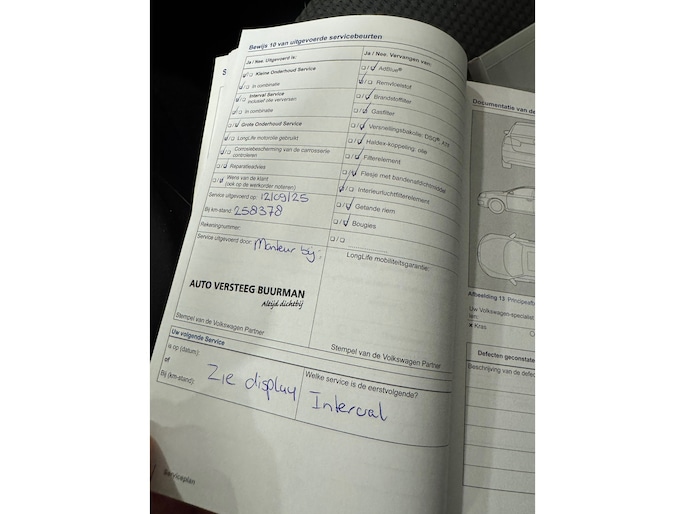 Bewijs 10 van uitgevoerde servicebeurten
Ja / Nee: Uitgevoerd is:
Kleine Onderhoud Service
In combinatie
Interval Service
inclusief olie verversen
In combinatie
Grote Onderhoud Service
LongLife motorolie gebruikt
Corrosiebescherming van de carrosserie
controleren
Reparatieadvies
Wens van de klant
(ook op de werkorder noteren)
Service uitgevoerd op: 12/09/25
Bij km-stand: 258378
Rekeningnummer:
Service uitgevoerd door: Monteur bij:
AUTO VERSTEEG BUURMAN
Altijd dichtbij
Stempel van de Volkswagen Partner
Ja / Nee: Vervangen van:
AdBlue®
Remvloeistof
Brandstoffilter
Gasfilter
Versnellingsbakolie: DSG®, AM
Haldex-koppeling: olie
Filterelement
Flesje met bandenafdichtmiddel
Interieurluchtfilterelement
Getande riem
Bougies
LongLife mobiliteitsgarantie:
Stempel van de Volkswagen Partner
Uw volgende Service
is op (datum):
of
Bij (km-stand):
Zie display
Welke service is de eerstvolgende?
Interval
Serviceplan
Documentatie van de
Afbeelding 13 Principeafb
Uw Volkswagen-specialist
Kras
Defecten geconstate
Beschrijving van de defec